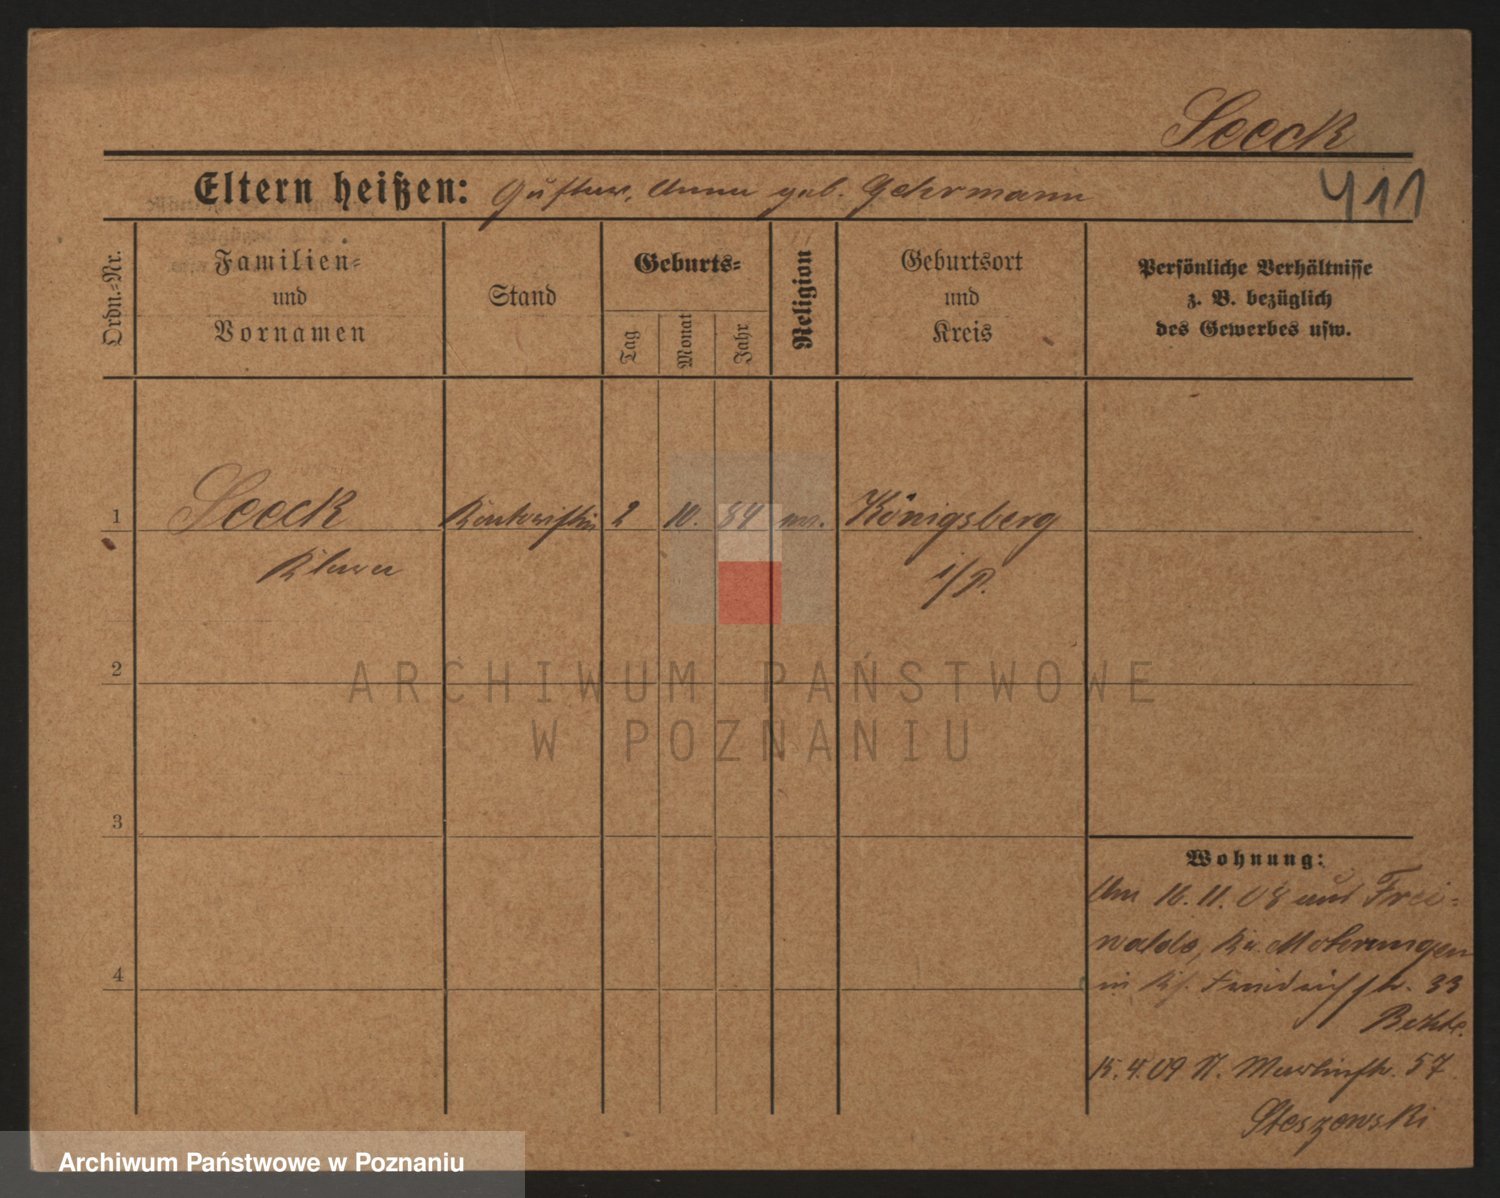 Seeck
411
Eltern heißen: Gustav, Anna geb. Gehrmann
Ordn.-Nr.
Familien-
und
Vornamen
Stand
Geburts-
Tag
Monat
Jahr
Religion
Geburtsort
und
Kreis
Persönliche Verhältnisse
z. B. bezüglich
des Gewerbes usw.
1
Seeck
Kontoristin
2
10.
84
Königsberg
Klara
i/P.
2
ARCHIWUM PAŃSTWOWE
W POZNANIU
3
Wohnung:
16.11.08 aus Frei-
walde, Kr. Mohrungen
in Friedrichstr. 33
4
15.4.09 Martinstr. 57
Stoszewski
Archiwum Państwowe w Poznaniu